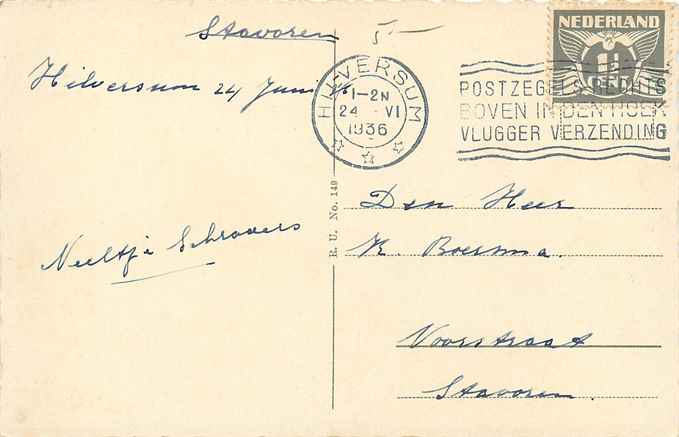 Stavoren
Hilversum 24 Juni
Neeltje Schrovers
R. U. No. 149
5-
HILVERSUM
1-2N
24 VI
1936
POSTZEGELS RECHTS
BOVEN IN DEN HOEK
VLUGGER VERZENDING
NEDERLAND
1½
Den Heer
K. Boersma.
Voorstraat
Stavoren.